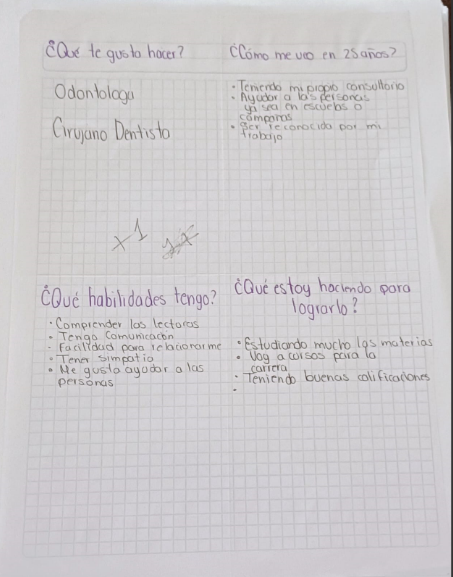 ¿Qué te gusta hacer?
Odontologa
Cirujano Dentista
¿Cómo me veo en 25 años?
· Teniendo mi propio consultorio
· Ayudar a las personas
ya sea en escuelas o
campañas
· Ser reconocida por mi
trabajo
x1
¿Qué habilidades tengo?
· Comprender las lecturas
· Tengo Comunicación
· Facilidad para relacionarme
· Tener simpatia
· Me gusta ayudar a las
personas
¿Qué estoy haciendo para
lograrlo?
· Estudiando mucho las materias
· Voy a cursos para la
carrera
· Teniendo buenas calificaciones
·